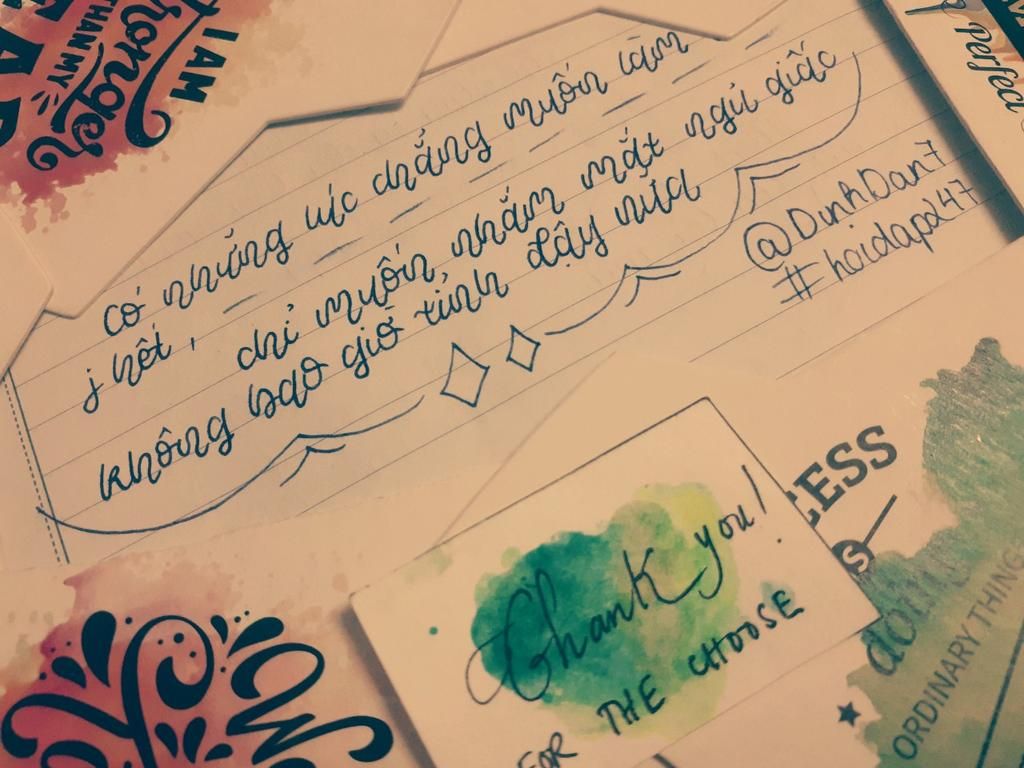 I AM
THAN MY
Perfect
có những lúc chẳng muốn làm
j hết, chỉ muốn nhắm mắt ngủ giấc
không bao giờ tỉnh dậy nữa
@DinhDan7
#hoidap247
CESS
doing
ORDINARY THING
Thank you!
FOR THE CHOOSE